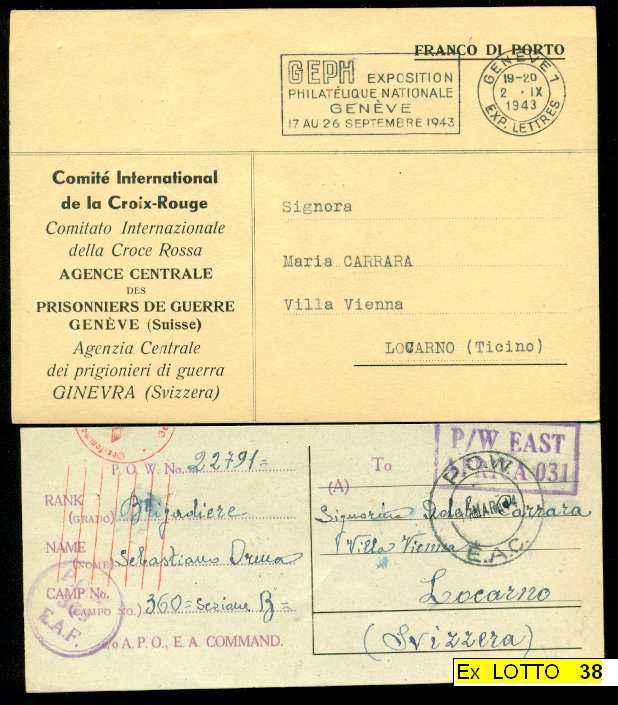 FRANCO DI PORTO
GEPH EXPOSITION
PHILATÉLIQUE NATIONALE
GENÈVE
17 AU 26 SEPTEMBRE 1943
GENÈVE 1
19-20
2 . IX
1943
EXP. LETTRES
Comité International
de la Croix-Rouge
Comitato Internazionale
della Croce Rossa
AGENCE CENTRALE
DES
PRISONNIERS DE GUERRE
GENÈVE (Suisse)
Agenzia Centrale
dei prigionieri di guerra
GINEVRA (Svizzera)
Signora
Maria CARRARA
Villa Vienna
LOCARNO (Ticino)
P/W EAST
031
P.O.W.
E.A.C.
P. O. W. No. 22791=
RANK
(GRADO) Brigadiere
NAME
(NOME) Sebastiano
CAMP No.
(CAMPO NO.) 360=Sezione B=
c/o A. P. O., E. A. COMMAND.
E.A.F.
To
(A)
Signorina Carrara
Villa Vienna
Locarno
(Svizzera)
Ex LOTTO 38